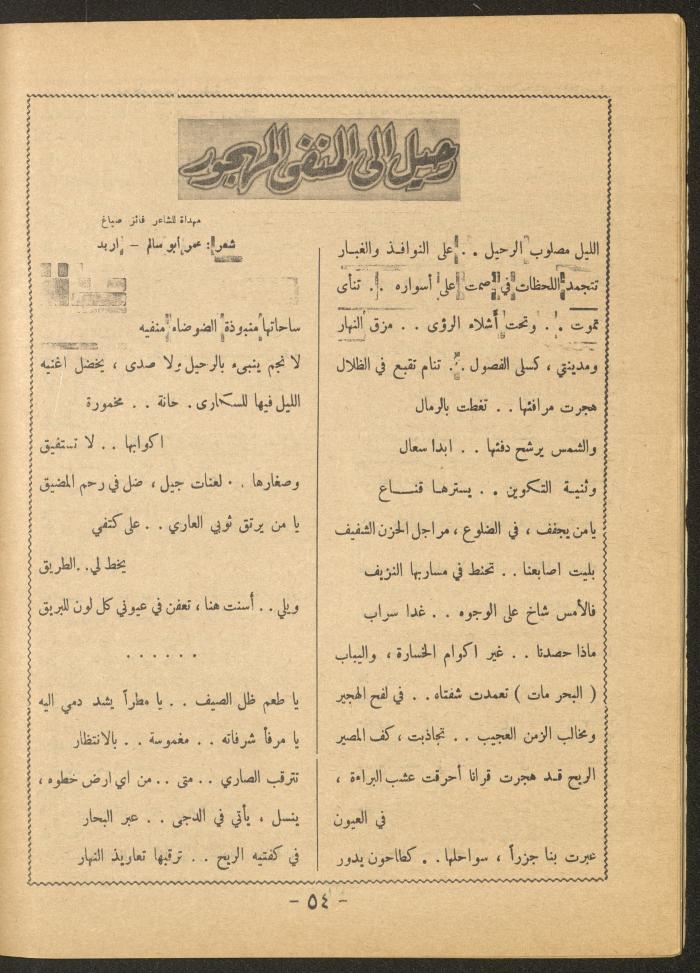 رحيل الى المنفى المهجور
مهداة للشاعر فائز صياغ
شعر : عمر أبو سالم - اربد
الليل مصلوب الرحيل . . على النوافذ والغبار
تتجمد اللحظات في صمت على أسواره . . تنأى
تموت . . وتحت أشلاء الرؤى . . مزق النهار
ومدينتي ، كسلى الفصول . . تنام تقبع في الظلال
هجرت مرافئها . . تغطت بالرمال
والشمس يرشح دفئها . . ابدا سعال
وثنية التكوين . . يسترها قنـــاع
يامن يجفف ، في الضلوع ، مراجل الحزن الشفيف
بليت اصابعنا . . تحنط في مساربها النزيف
فالأمس شاخ على الوجوه . . غدا سراب
ماذا حصدنا . . غير اكوام الخسارة ، واليباب
( البحر مات ) تعمدت شفتاه . . في لفح الهجير
ومخالب الزمن العجيب . . تجاذبت ، كف المصير
الريح قـد هجرت قرانا أحرقت عشب البراءة ،
في العيون
عبرت بنا جزراً ، سواحلها . . كطاحون يدور
ساحاتها منبوذة الضوضاء منفيه
لا نجم ينبىء بالرحيل ولا صدى ، يخضل اغنيه
الليل فيها للسكارى . حانة . . مخمورة
اكوابها . . لا تستفيق
وصغارها . . لعنات جيل ، ضل في رحم المضيق
يا من يرتق ثوبي العاري . . على كتفي
يخط لي . . الطريق
ويلي . . أسنت هنا ، تعفن في عيوني كل لون للبريق
. . . . . .
يا طعم ظل الصيف . . يا مطراً يشد دمي اليه
يا مرفأ شرفاته . . مغموسة . . بالانتظار
تترقب الصاري . . متى . . من اي ارض خطوه ،
ينسل ، يأتي في الدجى . . عبر البحار
في كفتيه الريح . . ترقبها تعاويذ النهار
- ٥٤ -